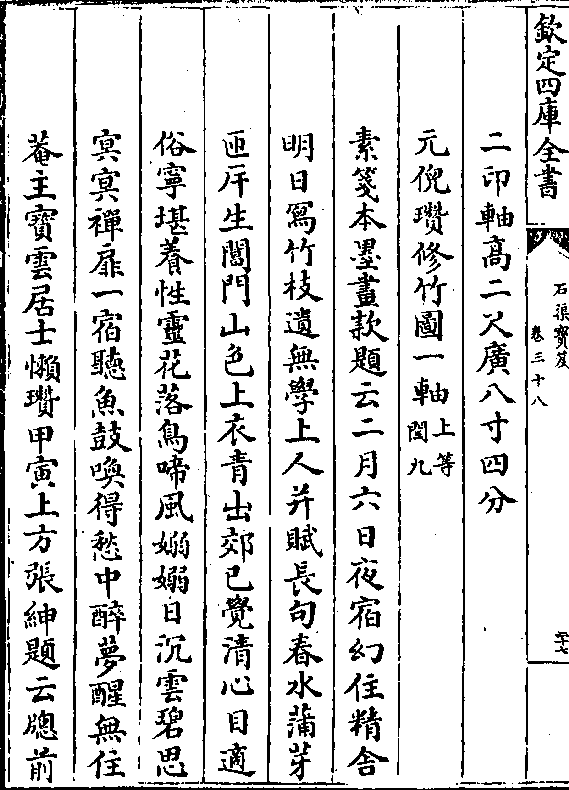 欽定四庫全書
石渠寳笈
卷三十八
二十七
二印軸高二尺廣八寸四分
元倪瓚修竹圖一軸上等閏九
素箋本墨畫款題云二月六日夜宿幻住精舍
明日寫竹枝遺無學上人并賦長句春水蒲芽
匝岸生閶門山色上衣青出郊已覺清心目適
俗寧堪養性靈花落鳥啼風嫋嫋日沉雲碧思
冥冥禪扉一宿聽魚鼓喚得愁中醉夢醒無住
菴主寳雲居士懶瓚甲寅上方張紳題云牕前